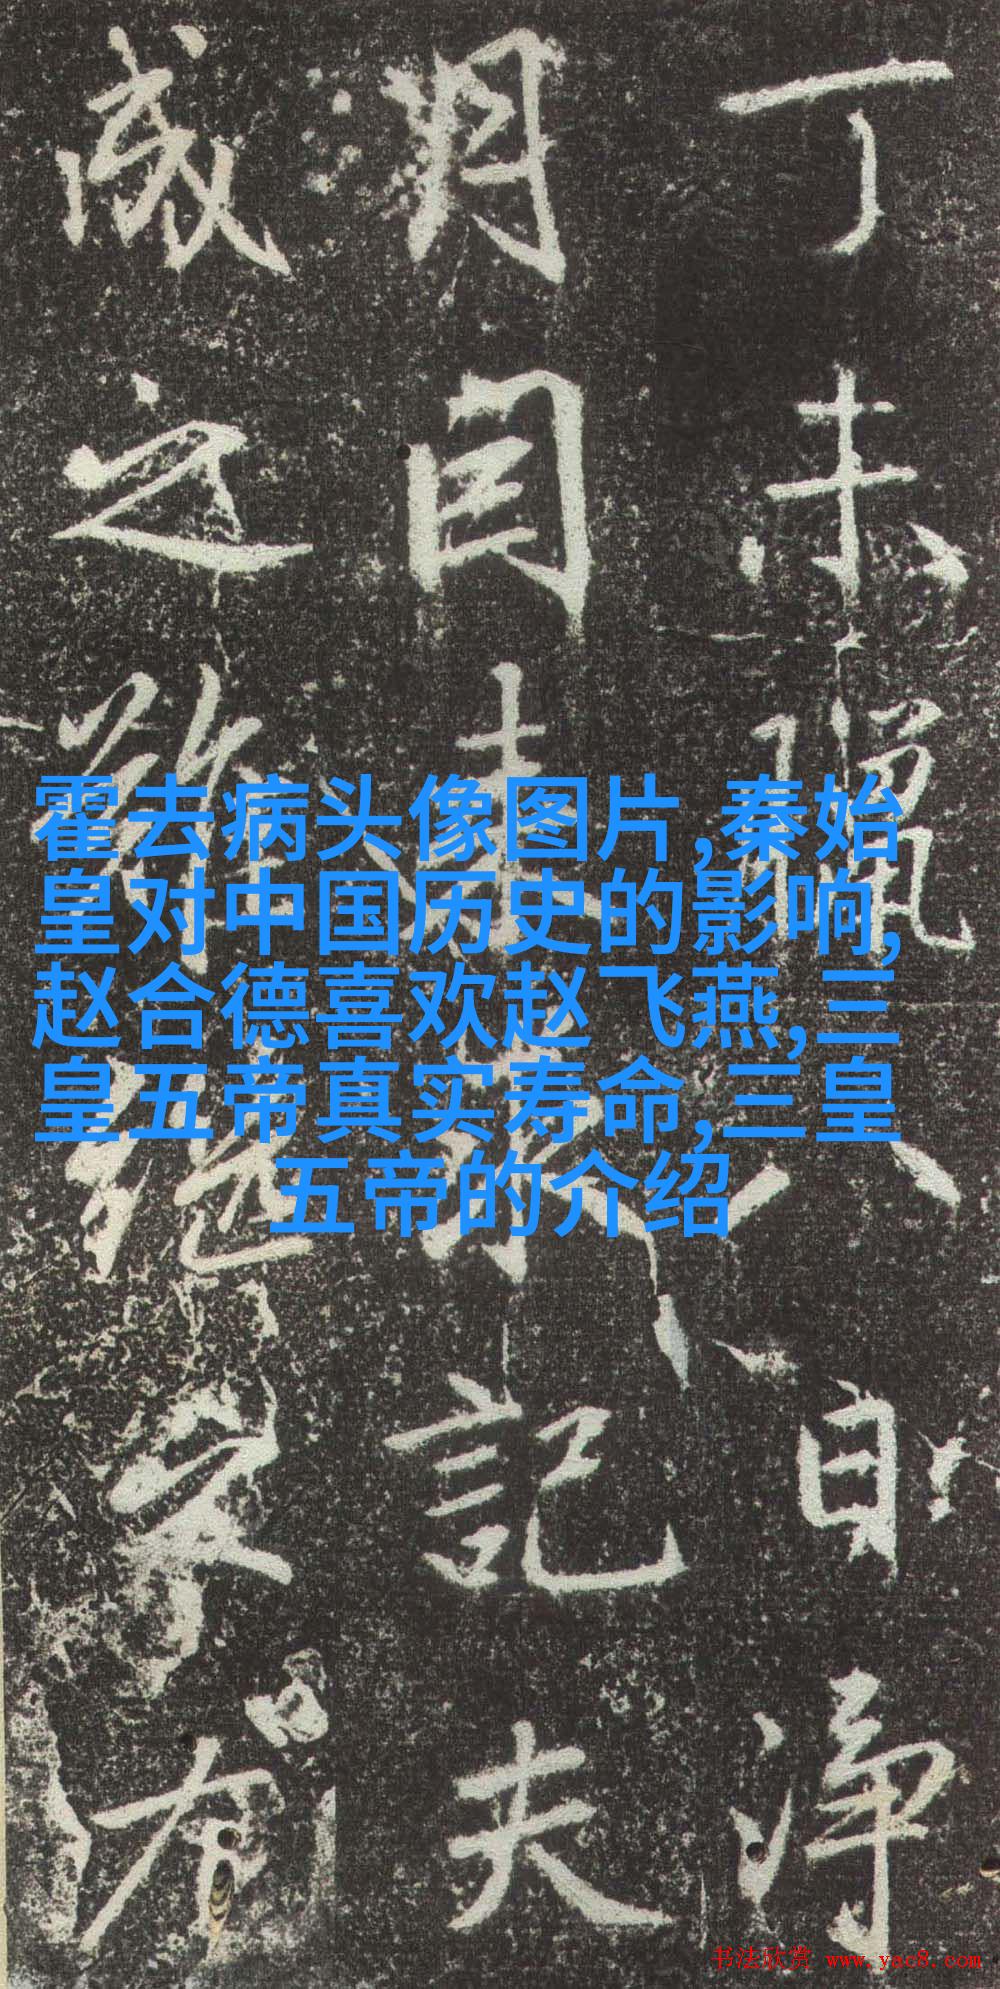 丁未臘八日淨
月來求記夫
之絕
霍去病头像图片,秦始
皇对中国历史的影响,
赵合德喜欢赵飞燕,三
皇五帝真实寿命,三皇
五帝的介绍
书法欣赏 www.yac8.com